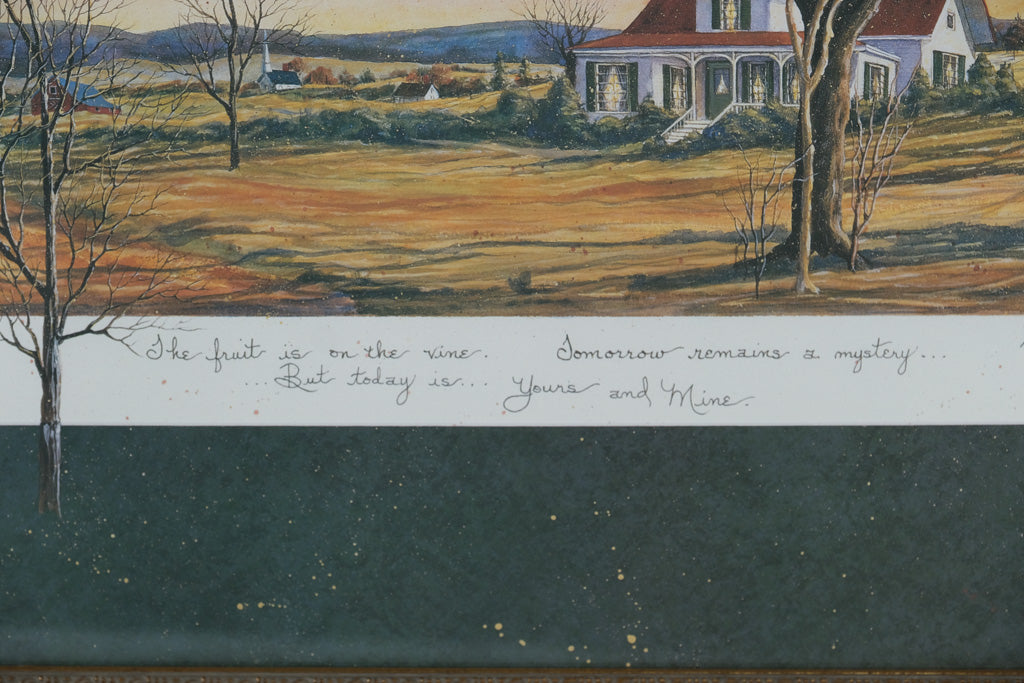 The fruit is on the vine. Tomorrow remains a mystery...
...But today is... Yours and Mine.